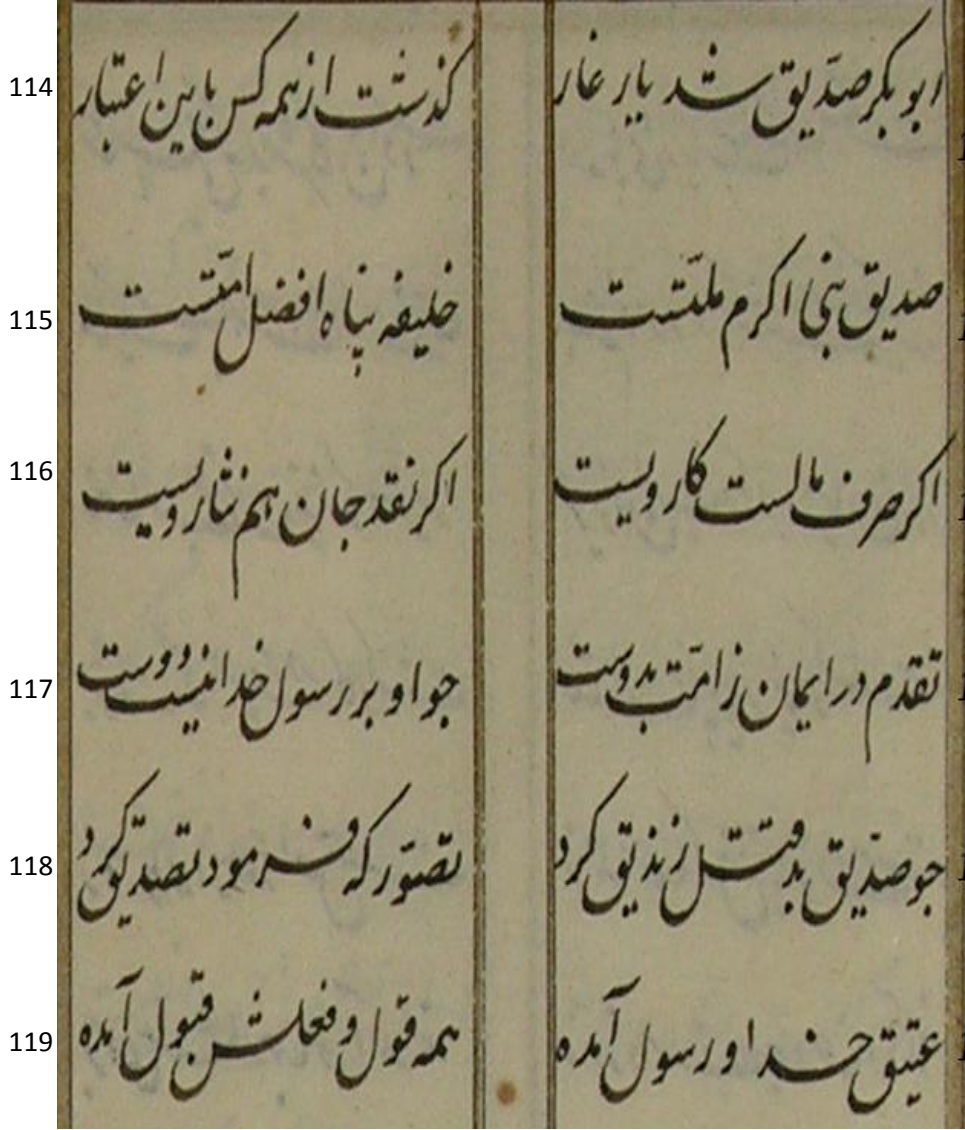 114 ابو بکر صدّیق شد یار غار کذشت از همه کس باین اعتبار
115 صدیق نبی اکرم ملتّست خلیفه پناه افضل امّتست
116 اکر صرف مالست کار ویست اکر نقد جان هم نثار ویست
117 تقدم در ایمان ز امّت بدوست جو او بر رسول خدا نیست دوست
118 جو صدّیق بد قتل زندیق کرد تصوّر که فرمود تصدیق کرد
119 عتیق خدا و رسول آمده همه قول و فعلش قبول آمده